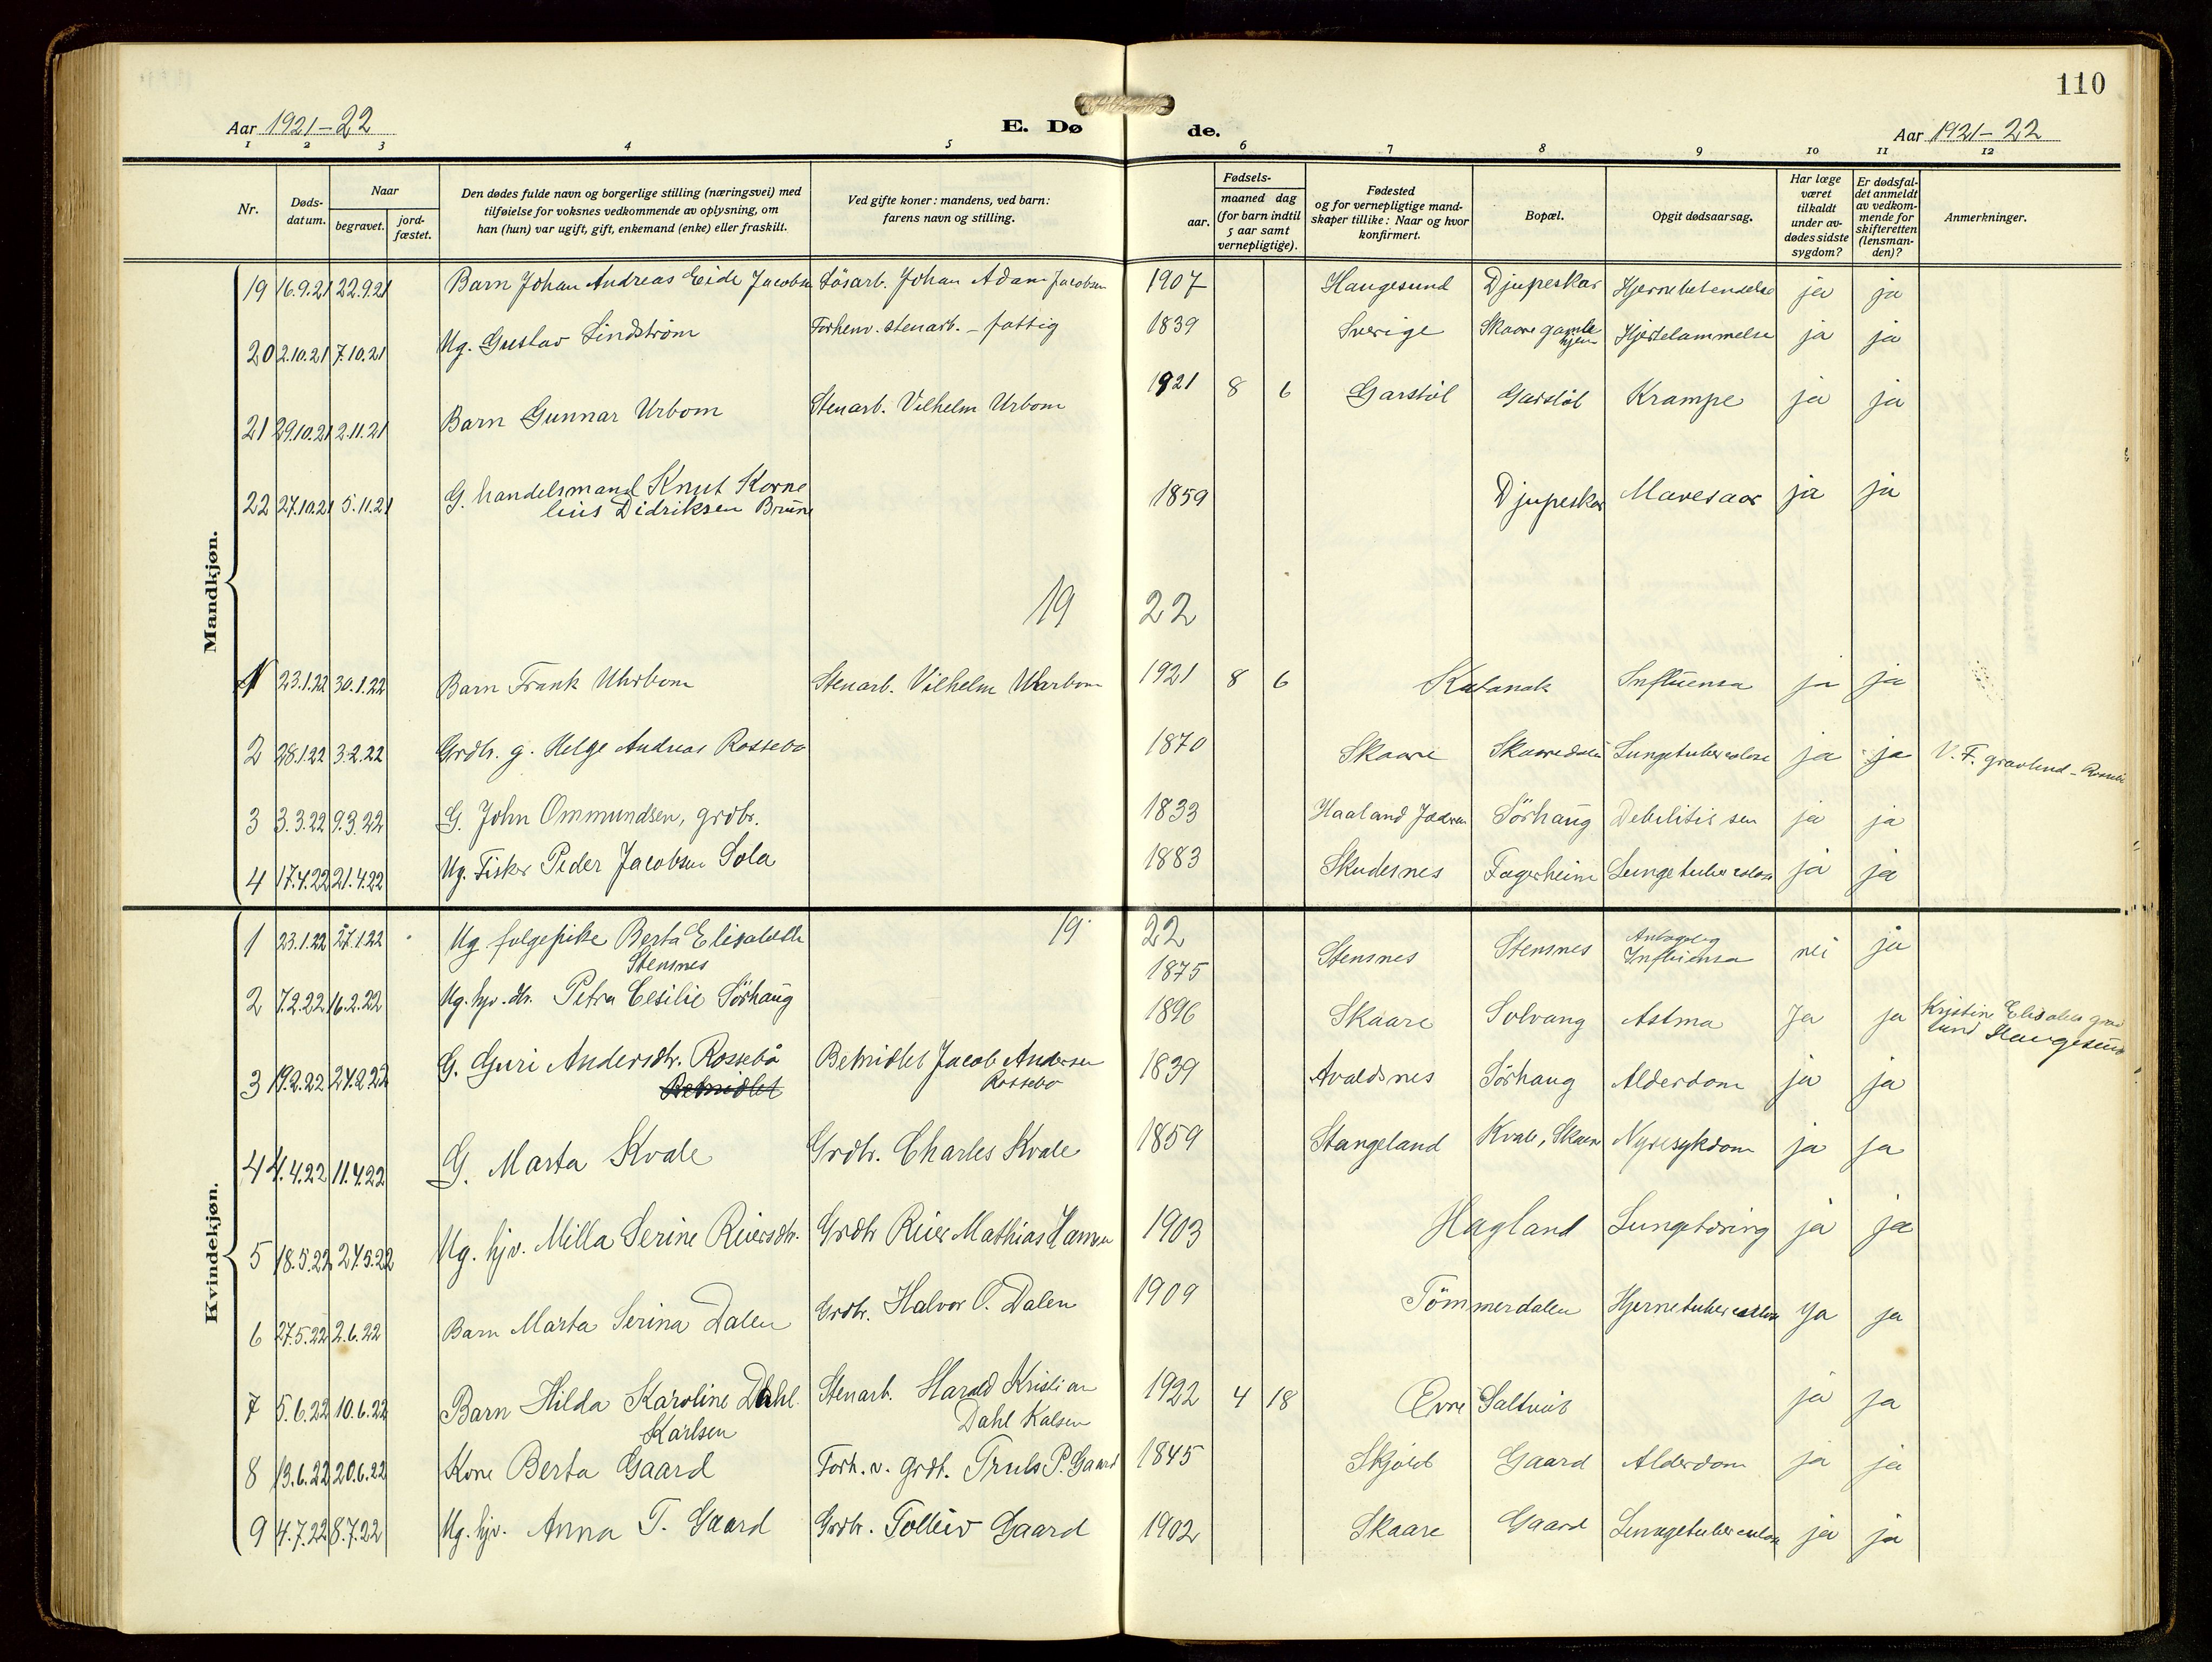 110
Aar 1921-22
E. Dø
de.
Aar 1921-22
1 2 3 4 5 6 7 8 9 10 11 12
Nr.
Døds-
datum.
Naar
begravet.
jord-
fæstet.
Den dødes fulde navn og borgerlige stilling (næringsvei) med
tilføielse for voksnes vedkommende av oplysning, om
han (hun) var ugift, gift, enkemand (enke) eller fraskilt.
Ved gifte koner: mandens, ved barn:
farens navn og stilling.
Fødsels-
aar.
maaned dag
(for barn indtil
5 aar samt
vernepligtige).
Fødested
og for vernepligtige mand-
skaper tillike: Naar og hvor
konfirmert.
Bopæl.
Opgit dødsaarsag.
Har læge
været
tilkaldt
under av-
dødes sidste
sygdom?
Er dødsfal-
det anmeldt
av vedkom-
mende for
skifteretten
(lensman-
den)?
Anmerkninger.
Mandkjøn.
19 16.9.21 22.9.21 Barn Johan Andreas Eide Jacobsen Løsarb. Johan Adam Jacobsen 1907 Haugesund Djupeskar Hjernebetendelse ja ja
20 2.10.21 7.10.21 Ug. Gustav Lindström Forhenv. stenarb. - fattig 1839 Sverige Skaare gamle Hjertelammelse ja ja
hjem
21 29.10.21 2.11.21 Barn Gunnar Urbom Stenarb. Vilhelm Urbom 1921 8 6 Garstöl Garstöl Krampe ja ja
22 27.10.21 5.11.21 G. handelsmand Knut Korne 1859 Djupeskar Mavesaar ja ja
lius Didriksen Brune
19 22
1 23.1.22 30.1.22 Barn Frank Uhrbom Stenarb. Vilhelm Uhrbom 1921 8 6 Influensa ja ja
2 28.1.22 3.2.22 Grdbr. g. Helge Andreas Rossebø 1870 Skaare Skaaredalen Lungetuberculose ja ja V. F. gravlund - Rossebø
3 3.3.22 9.3.22 G. John Ommundsen, grdbr. 1833 Haaland Jæderen Sörhaug Debilitis sen ja ja
4 17.4.22 21.4.22 Ug. Fisker Peder Jacobsen Sola 1883 Skudesnes Fagerheim Lungetuberculose ja ja
Kvindekjøn.
19 22
1 23.1.22 27.1.22 Ug følgepike Berta Elisabeth 1875 Stensnes Stensnes Antagelig nei ja
Stensnes Influensa
2 7.2.22 16.2.22 Ug. hjv. dtr. Petra Cesilie Sörhaug 1896 Skaare Solvang Astma Ja ja Kristin Elisabets grav
lund Haugesund
3 19.2.22 24.2.22 G. Guri Andersdtr. Rossebö Bemidlet Jacob Andersen 1839 Avaldsnes Sörhaug Alderdom ja ja
Bemidlet Rossebø
4 4.4.22 11.4.22 G. Marta Kvale Grdbr. Charles Kvale 1859 Stangeland Kvale, Skaare Nyresykdom ja ja
5 18.5.22 24.5.22 Ug. hjv. Milla Serine Reiersdtr. Grdbr Reier Mathias Hansen 1903 Hagland Lungetæring ja ja
6 27.5.22 2.6.22 Barn Marta Serina Dalen Grdbr. Halvor O. Dalen 1909 Tömmerdalen Hjernetuberculose ja ja
7 5.6.22 10.6.22 Barn Hilda Karoline Dahl Stenarb. Harald Kristian 1922 4 18 Övre Saltveit ja ja
Karlsen Dahl Kalsen
8 13.6.22 20.6.22 Kone Berta Gaard Forh. v. grdb. Truls P. Gaard 1845 Skjold Gaard Alderdom ja ja
9 4.7.22 8.7.22 Ug. hjv. Anna T. Gaard Grdbr. Tolleiv Gaard 1902 Skaare Gaard Lungetuberculose ja ja